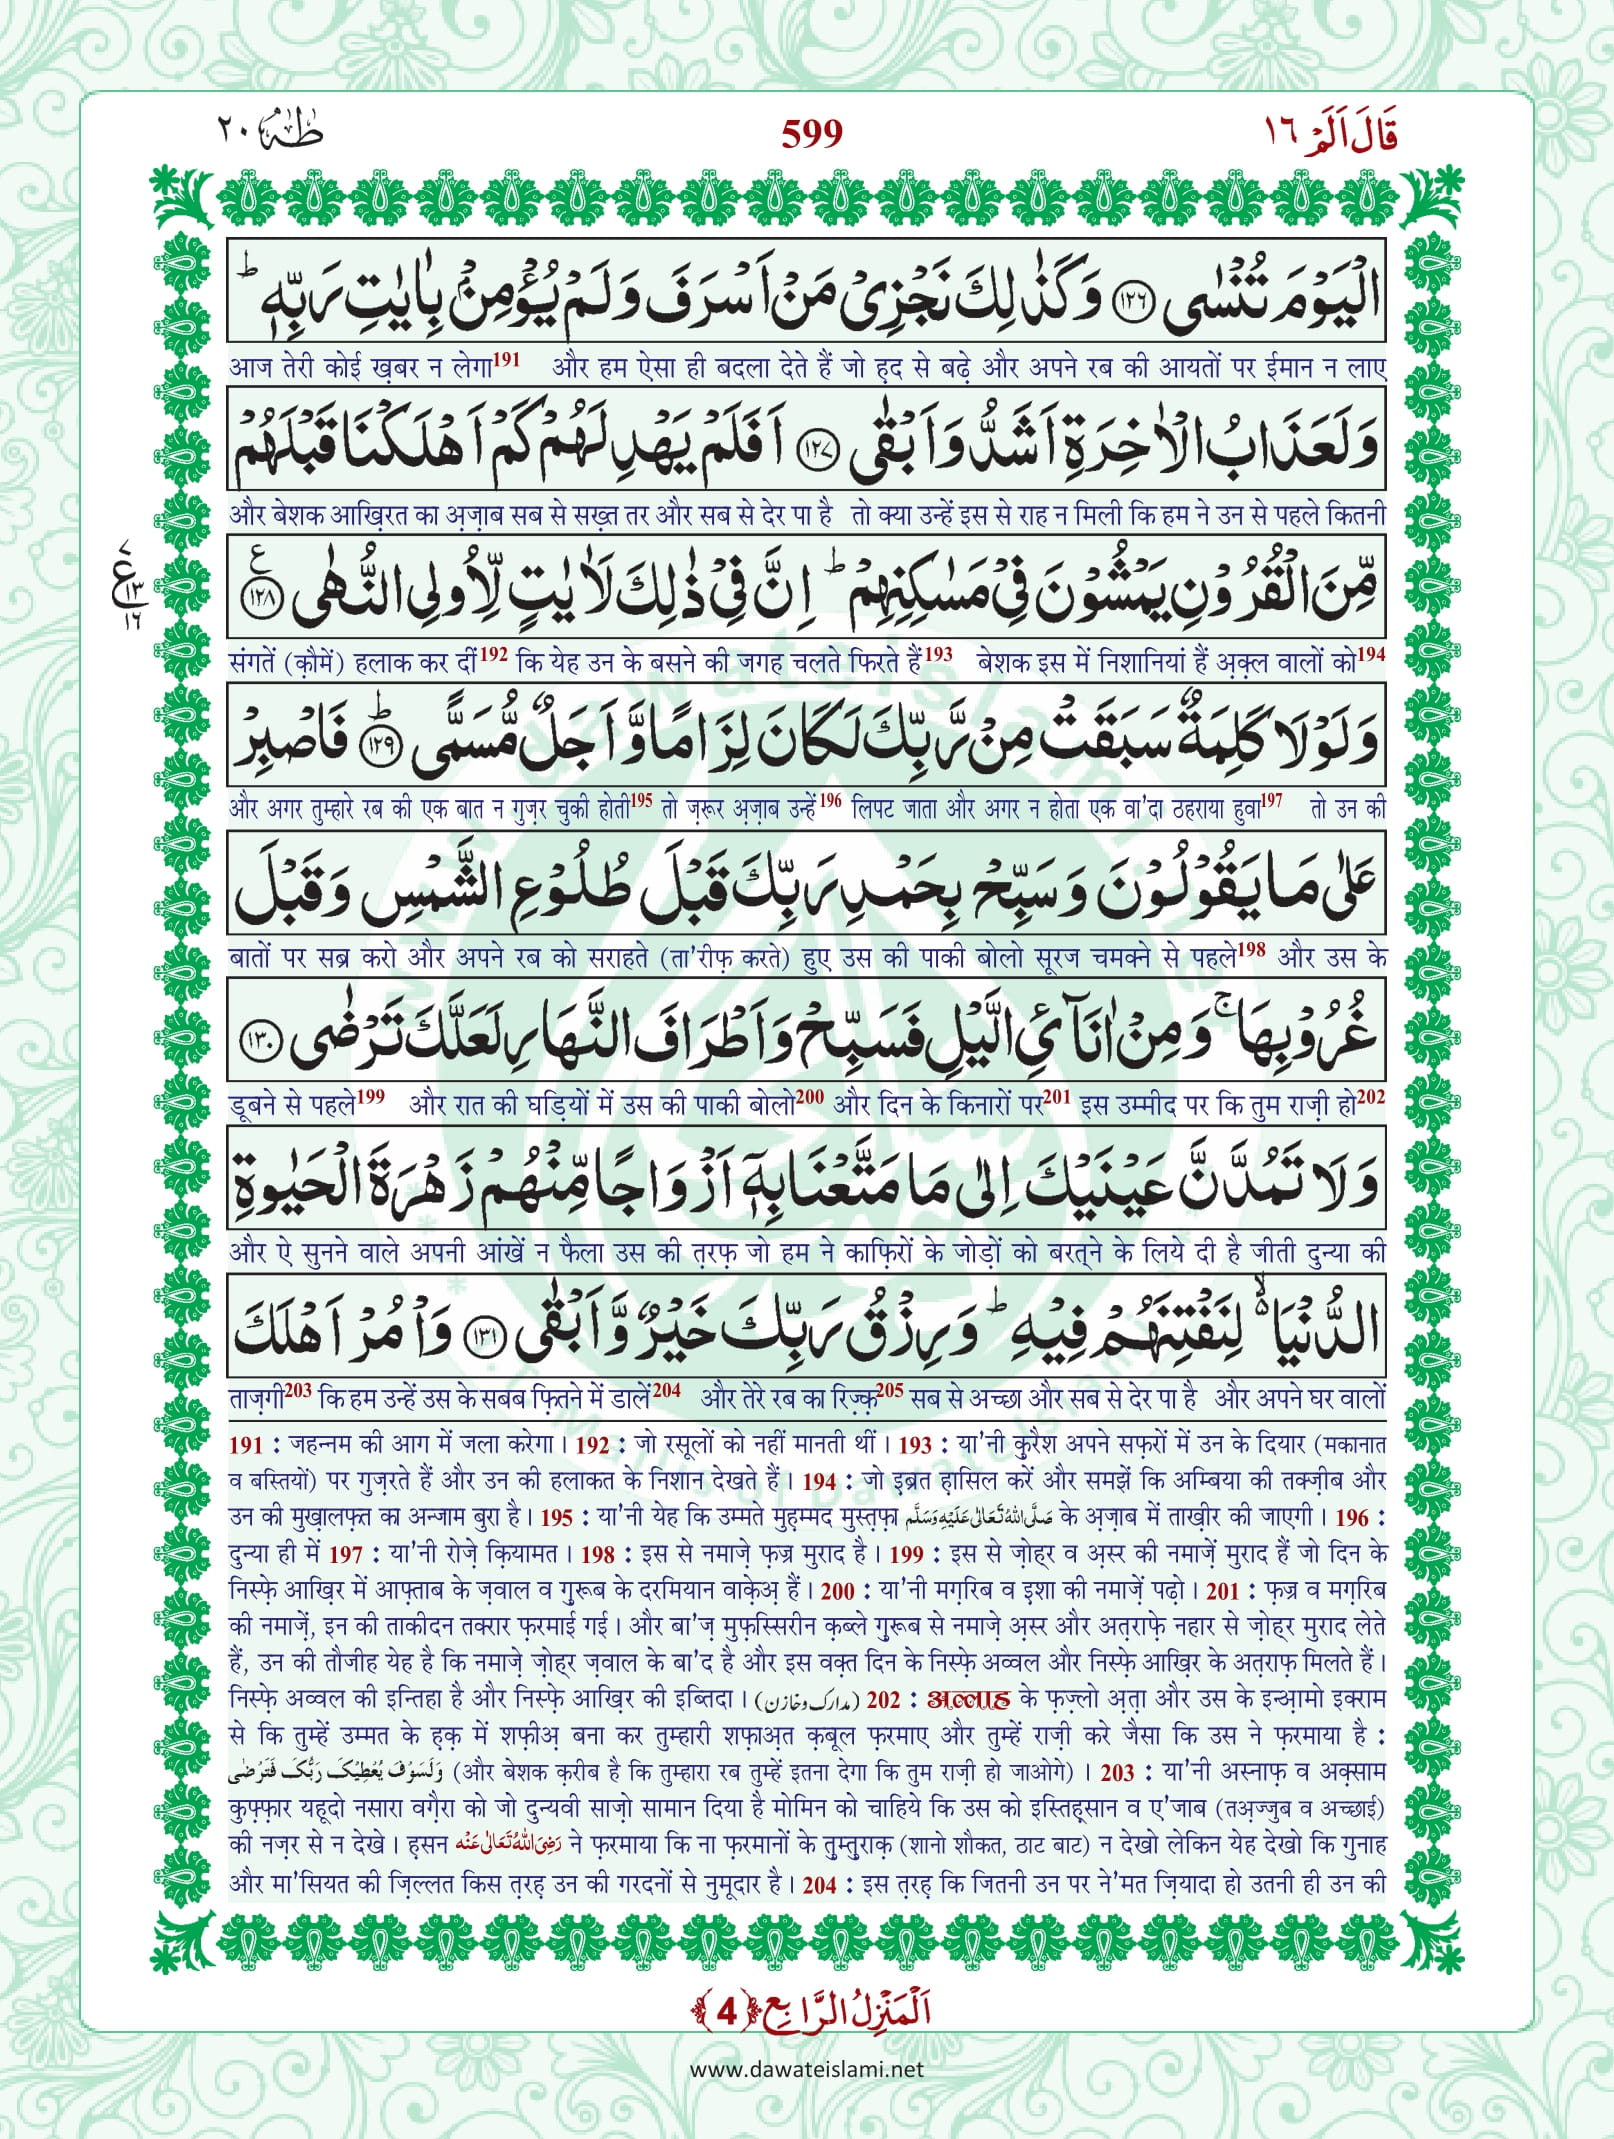 طٰهٰ ٢٠
599
قَالَ اَلَمْ ١٦
الْيَوْمَ تُنْسٰى ﴿١٢٦﴾ وَكَذٰلِكَ نَجْزِیْ مَنْ اَسْرَفَ وَلَمْ يُؤْمِنْۢ بِاٰيٰتِ رَبِّهٖ ؕ
आज तेरी कोई ख़बर न लेगा191 और हम ऐसा ही बदला देते हैं जो ह़द से बढ़े और अपने रब की आयतों पर ईमान न लाए
وَلَعَذَابُ الْاٰخِرَةِ اَشَدُّ وَاَبْقٰى ﴿١٢٧﴾ اَفَلَمْ يَهْدِ لَهُمْ كَمْ اَهْلَكْنَا قَبْلَهُمْ
और बेशक आख़िरत का अ़ज़ाब सब से सख़्त तर और सब से देर पा है तो क्या उन्हें इस से राह न मिली कि हम ने उन से पहले कितनी
مِّنَ الْقُرُوْنِ يَمْشُوْنَ فِیْ مَسٰكِنِهِمْ ؕ اِنَّ فِیْ ذٰلِكَ لَاٰيٰتٍ لِّاُولِی النُّهٰى ﴿١٢٨﴾ ع
٧ ع ١٣ ١٦
संगतें (क़ौमें) हलाक कर दीं192 कि येह उन के बसने की जगह चलते फिरते हैं193 बेशक इस में निशानियां हैं अ़क़्ल वालों को194
وَلَوْلَا كَلِمَةٌ سَبَقَتْ مِنْ رَّبِّكَ لَكَانَ لِزَامًا وَّاَجَلٌ مُّسَمًّى ﴿١٢٩﴾ ؕ فَاصْبِرْ
और अगर तुम्हारे रब की एक बात न गुज़र चुकी होती195 तो ज़रूर अ़ज़ाब उन्हें196 लिपट जाता और अगर न होता एक वा'दा ठहराया हुवा197 तो उन की
عَلٰى مَا يَقُوْلُوْنَ وَسَبِّحْ بِحَمْدِ رَبِّكَ قَبْلَ طُلُوْعِ الشَّمْسِ وَقَبْلَ
बातों पर सब्र करो और अपने रब को सराहते (ता'रीफ़ करते) हुए उस की पाकी बोलो सूरज चमक्ने से पहले198 और उस के
غُرُوْبِهَا ۚ وَمِنْ اٰنَآئِ الَّيْلِ فَسَبِّحْ وَاَطْرَافَ النَّهَارِ لَعَلَّكَ تَرْضٰى ﴿١٣٠﴾
डूबने से पहले199 और रात की घड़ियों में उस की पाकी बोलो200 और दिन के किनारों पर201 इस उम्मीद पर कि तुम राज़ी हो202
وَلَا تَمُدَّنَّ عَيْنَيْكَ اِلٰى مَا مَتَّعْنَا بِهٖۤ اَزْوَاجًا مِّنْهُمْ زَهْرَةَ الْحَيٰوةِ
और ऐ सुनने वाले अपनी आंखें न फैला उस की त़रफ़ जो हम ने काफ़िरों के जोड़ों को बरत्ने के लिये दी है जीती दुन्या की
الدُّنْيَا ۙ۬ لِنَفْتِنَهُمْ فِيْهِ ؕ وَرِزْقُ رَبِّكَ خَيْرٌ وَّاَبْقٰى ﴿١٣١﴾ وَاْمُرْ اَهْلَكَ
ताज़गी203 कि हम उन्हें उस के सबब फ़ित्ने में डालें204 और तेरे रब का रिज़्क़205 सब से अच्छा और सब से देर पा है और अपने घर वालों
191 : जहन्नम की आग में जला करेगा। 192 : जो रसूलों को नहीं मानती थीं। 193 : या'नी क़ुरैश अपने सफ़रों में उन के दियार (मकानात
व बस्तियों) पर गुज़रते हैं और उन की हलाकत के निशान देखते हैं। 194 : जो इब्रत ह़ासिल करें और समझें कि अम्बिया की तक्ज़ीब और
उन की मुख़ालफ़त का अन्जाम बुरा है। 195 : या'नी येह कि उम्मते मुह़म्मद मुस्त़फ़ा صَلَّى اللهُ تَعَالٰى عَلَيْهِ وَسَلَّم के अ़ज़ाब में ताख़ीर की जाएगी। 196 :
दुन्या ही में 197 : या'नी रोज़े क़ियामत। 198 : इस से नमाज़े फ़ज्र मुराद है। 199 : इस से ज़ोह्र व अ़स्र की नमाज़ें मुराद हैं जो दिन के
निस्फ़े आख़िर में आफ़्ताब के ज़वाल व ग़ुरूब के दरमियान वाक़ेअ़ हैं। 200 : या'नी मग़रिब व इशा की नमाज़ें पढ़ो। 201 : फ़ज्र व मग़रिब
की नमाज़ें, इन की ताकीदन तक्रार फ़रमाई गई। और बा'ज़ मुफ़स्सिरीन क़ब्ले ग़ुरूब से नमाज़े अ़स्र और अत़राफ़े नहार से ज़ोह्र मुराद लेते
हैं, उन की तौजीह येह है कि नमाज़े ज़ोह्र ज़वाल के बा'द है और इस वक़्त दिन के निस्फ़े अव्वल और निस्फ़े आख़िर के अत़राफ़ मिलते हैं।
निस्फ़े अव्वल की इन्तिहा है और निस्फ़े आख़िर की इब्तिदा। (مدارک وخازن) 202 : अल्लाह के फ़ज़्लो अ़ता और उस के इन्आ़मो इक्राम
से कि तुम्हें उम्मत के ह़क़ में शफ़ीअ़ बना कर तुम्हारी शफ़ाअ़त क़बूल फ़रमाए और तुम्हें राज़ी करे जैसा कि उस ने फ़रमाया है :
وَلَسَوْفَ يُعْطِيْكَ رَبُّكَ فَتَرْضٰى (और बेशक क़रीब है कि तुम्हारा रब तुम्हें इतना देगा कि तुम राज़ी हो जाओगे) । 203 : या'नी अस्नाफ़ व अक़्साम
कुफ़्फ़ार यहूदो नसारा वग़ैरा को जो दुन्यवी साज़ो सामान दिया है मोमिन को चाहिये कि उस को इस्तिह़्सान व ए'जाब (तअ़ज्जुब व अच्छाई)
की नज़र से न देखे। ह़सन رَضِىَ اللهُ تَعَالٰى عَنْه ने फ़रमाया कि ना फ़रमानों के तुम्तुराक़ (शानो शौकत, ठाट बाट) न देखो लेकिन येह देखो कि गुनाह
और मा'सियत की ज़िल्लत किस त़रह़ उन की गरदनों से नुमूदार है। 204 : इस त़रह़ कि जितनी उन पर ने'मत ज़ियादा हो उतनी ही उन की
اَلْمَنْزِلُ الرَّابِع ﴿4﴾
www.dawateislami.net